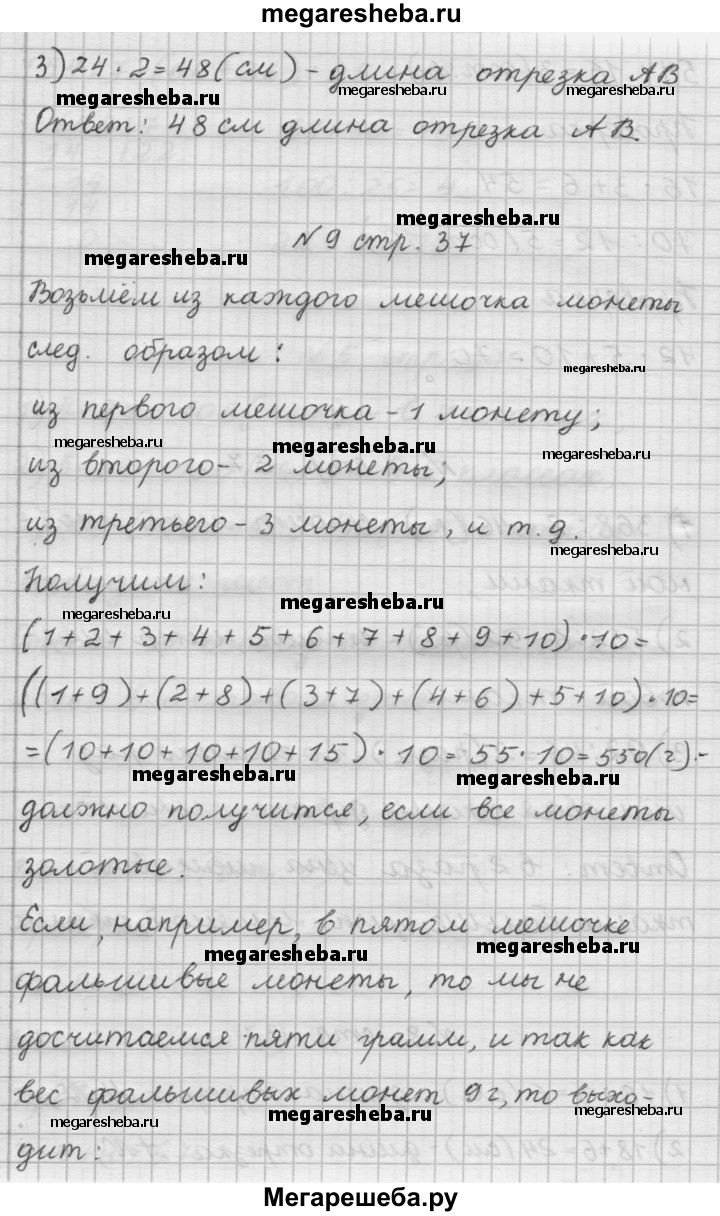 megaresheba.ru
3) 24 · 2 = 48 (см) - длина отрезка АВ
megaresheba.ru megaresheba.ru megaresheba.ru
Ответ: 48 см длина отрезка АВ.
megaresheba.ru
№ 9 стр. 37
megaresheba.ru
Возьмём из каждого мешочка монеты
след. образом:
megaresheba.ru
из первого мешочка - 1 монету;
megaresheba.ru megaresheba.ru megaresheba.ru
из второго - 2 монеты;
из третьего - 3 монеты, и т.д.
megaresheba.ru
Получим:
megaresheba.ru megaresheba.ru
(1+2+3+4+5+6+7+8+9+10)·10=
((1+9)+(2+8)+(3+7)+(4+6)+5+10)·10=
=(10+10+10+10+15)·10=55·10=550(г).-
megaresheba.ru megaresheba.ru
должно получится, если все монеты
золотые.
Если, например, в пятом мешочке
megaresheba.ru megaresheba.ru
фальшивые монеты, то мы не
досчитаемся пяти грамм, и так как
вес фальшивых монет 9г, то выхо-
megaresheba.ru megaresheba.ru megaresheba.ru
дит:
Мегарешеба.ру